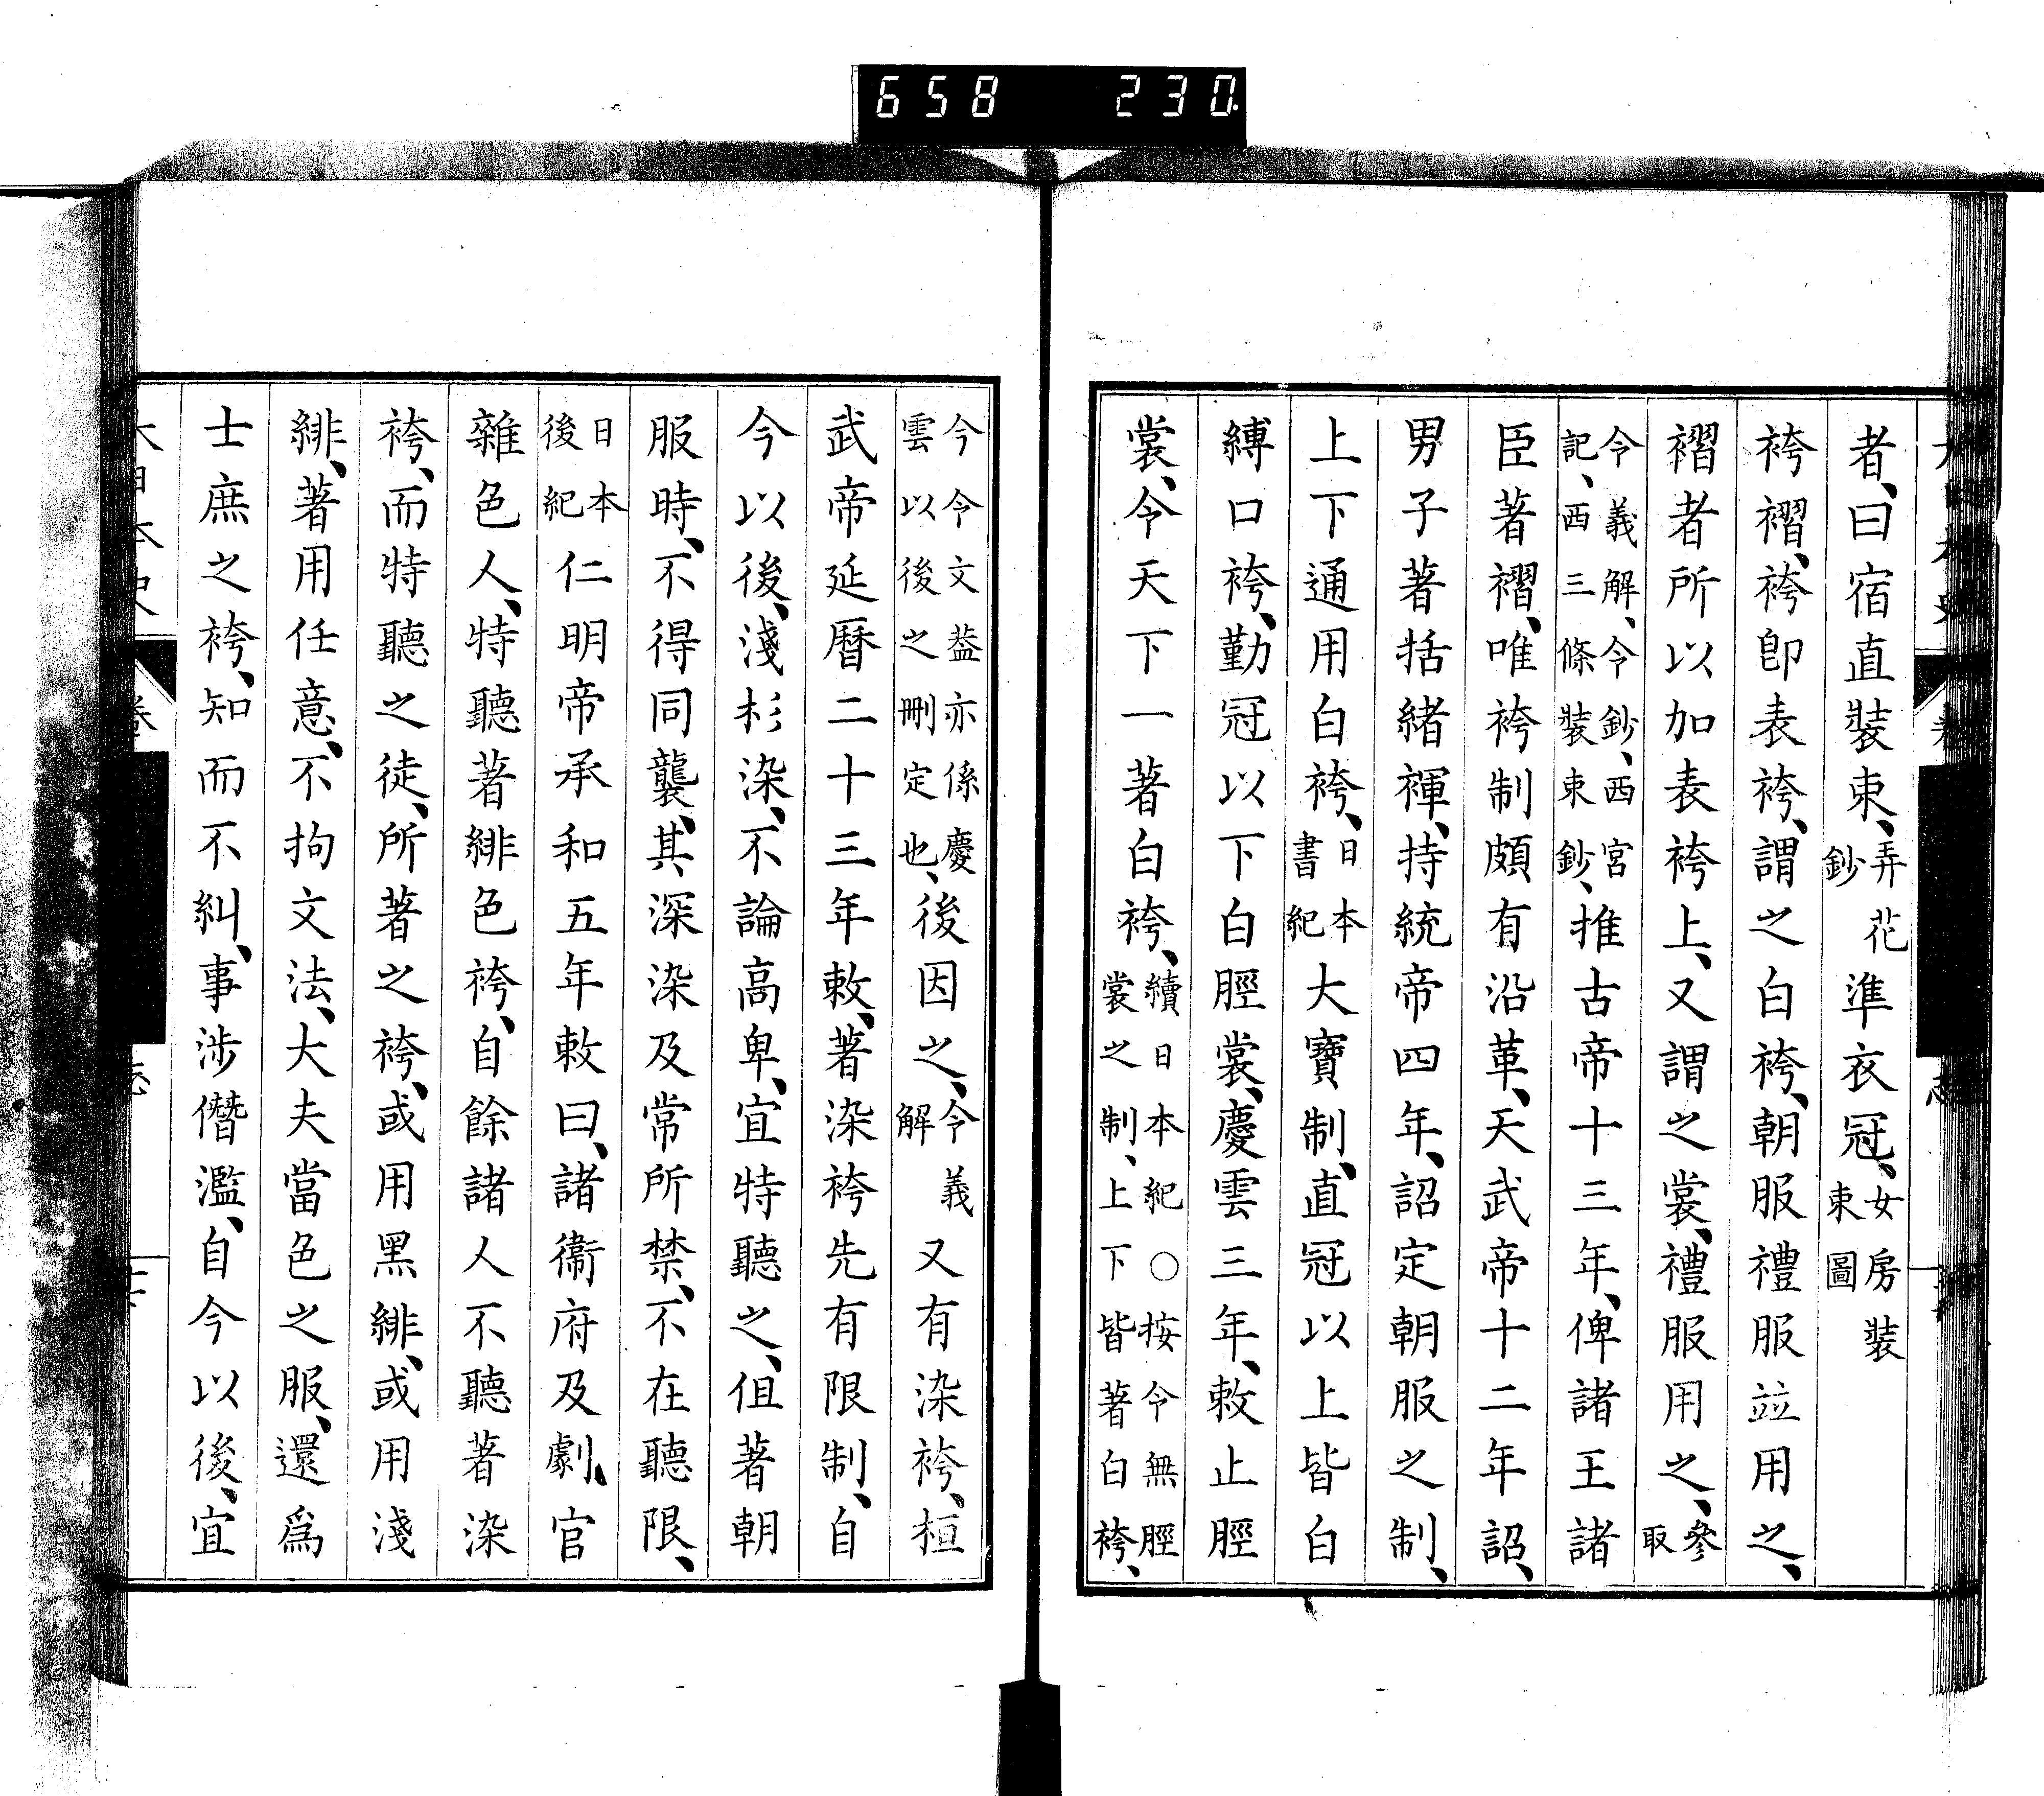 658 230
者、曰宿直裝束、弄花鈔準衣冠、女房裝束圖
袴褶、袴卽表袴、謂之白袴、朝服禮服竝用之、
褶者所以加表袴上、又謂之裳、禮服用之、參取
令義解、令鈔、西宮記、西三條裝束鈔、推古帝十三年、俾諸王諸
臣著褶、唯袴制頗有沿革、天武帝十二年詔、
男子著括緒褌、持統帝四年、詔定朝服之制、
上下通用白袴、日本書紀大寶制、直冠以上皆白
縛口袴、勤冠以下白脛裳、慶雲三年、敕止脛
裳、令天下一著白袴、續日本紀○按令無脛裳之制、上下皆著白袴、
今令文葢亦係慶雲以後之刪定也、後因之、令義解又有染袴、桓
武帝延曆二十三年敕、著染袴先有限制、自
今以後、淺杉染、不論高卑、宜特聽之、但著朝
服時、不得同襲、其深染及常所禁、不在聽限、
日本後紀仁明帝承和五年敕曰、諸衞府及劇官
雜色人、特聽著緋色袴、自餘諸人不聽著染
袴、而特聽之徒、所著之袴、或用黑緋、或用淺
緋、著用任意、不拘文法、大夫當色之服、還爲
士庶之袴、知而不糾、事涉僭濫、自今以後、宜